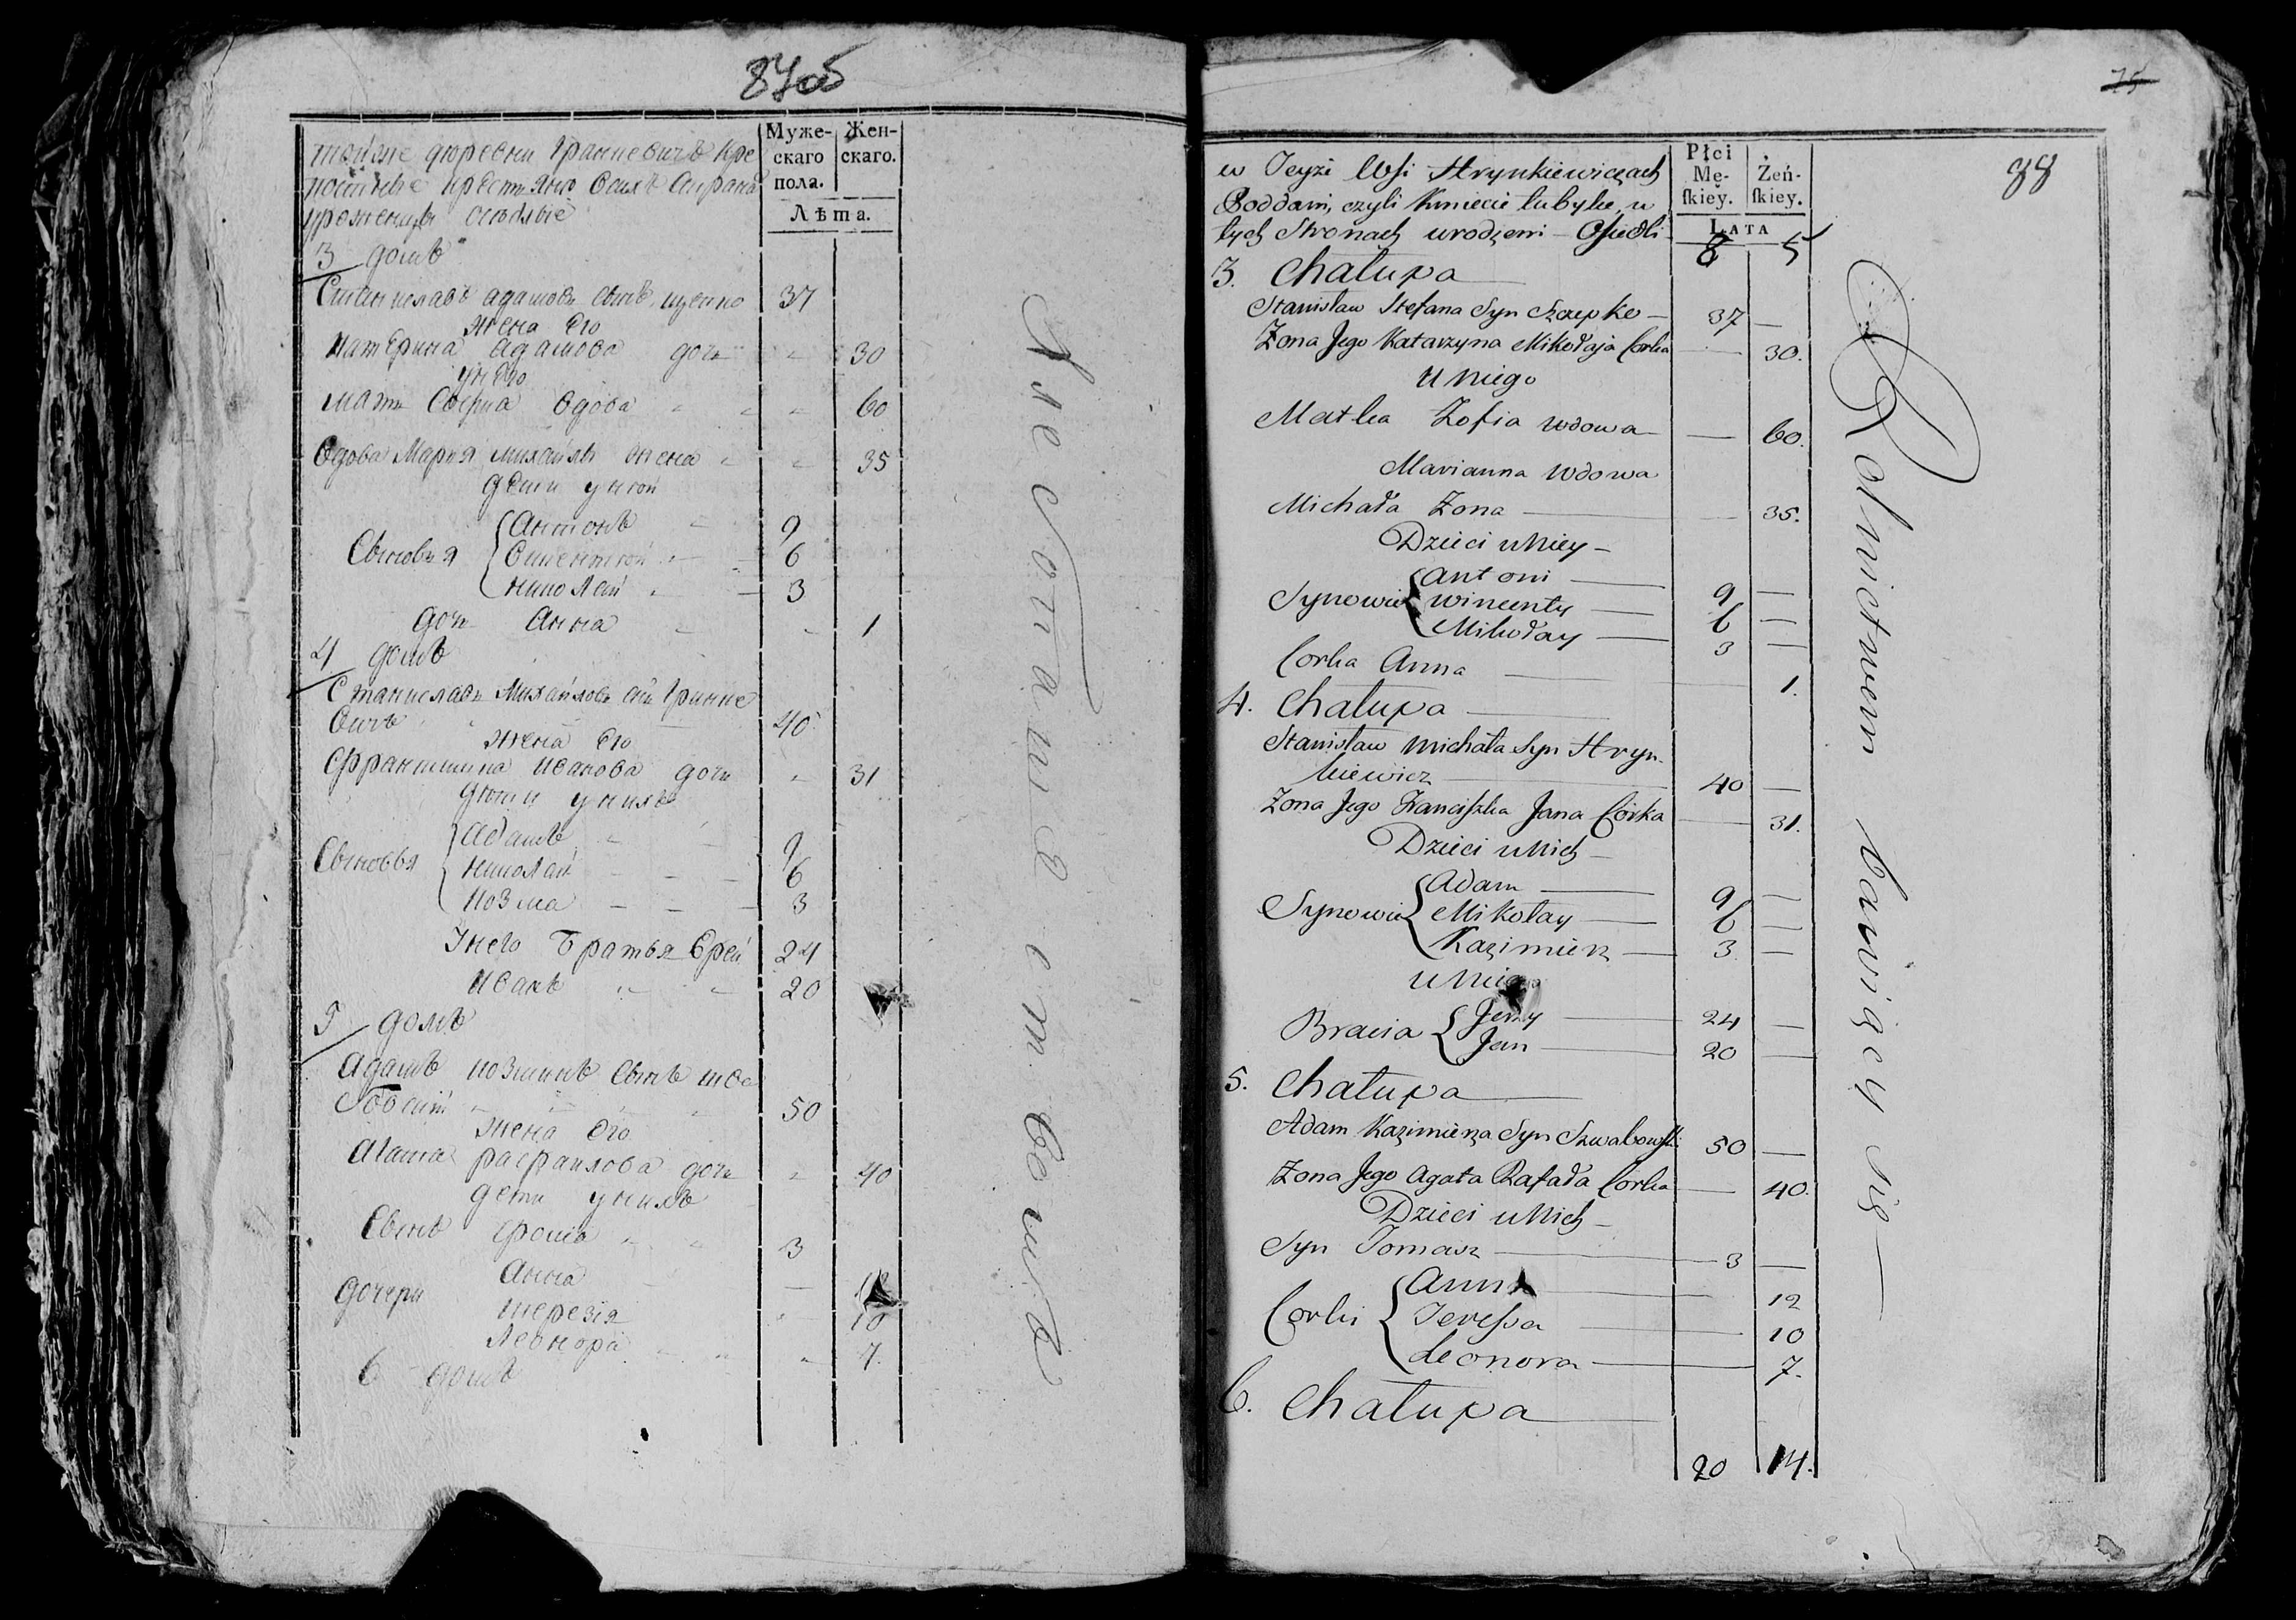 87об
Муже-
скаго
пола.
Жен-
скаго.
Лѣта.
тойже деревни Гринкевичъ кре
постные крестьяне всихъ Сторонахъ
уроженцы оседлые
3 домъ
Станиславъ адамовъ сынъ щепко 37
жена его
катерина адамова дочь " 30
у него
мать Софиа вдова " " " 60
вдова Мария михайлы жена " " 35
дети у ней
Сыновья
Антонъ 9
викентий 6
николай 3
дочь Анна " 1
4 домъ
Станиславъ Михайловъ сынъ Гринке
вичъ 40
жена его
Франтишка иванова дочь " 31
дети у нихъ
Сыновья
Адамъ 9
николай 6
козма 3
У него братья Ерей 24
иванъ 20
5 домъ
Адамъ козминъ сынъ шва
бовский 50
жена его
Агата рафаилова дочь " 40
дети у нихъ
Сынъ Фома 3
дочери
Анна
терезия 10
Леонора 7.
6 домъ
Хлебопашествомъ
75
88
Płci
Mę-
ſkiey.
Żeń-
ſkiey.
LATA
8 5
w Teyże Wsi Hrynkiewiczach
Poddani, czyli Kmiecie lubyłe w
tych Stronach urodzeni Osiedli
3. Chałupa
Stanisław Stefana Syn Szczepko 37 —
Żona Jego Katarzyna Mikołaja Corka — 30.
U Niego
Matka Zofia wdowa — 60.
Marianna Wdowa
Michała Zona — 35.
Dzieci u Niey
Synowie
Antoni 9 —
Wincenty 6 —
Mikołay 3 —
Corka Anna 1.
4. Chałupa
Stanisław Michała Syn Hryn-
kiewicz 40 —
Zona Jego Franciſzka Jana Córka — 31.
Dzieci u Nich
Synowie
Adam 9 —
Mikołay 6 —
Kazimierz 3. —
u Niego
Bracia
Jerzy 24 —
Jan 20 —
5. Chałupa
Adam Kazimierza Syn Szwabowſki 50 —
Żona Jego Agata Rafała Corka — 40.
Dzieci u Nich
Syn Tomasz 3 —
Corki
Anna 12
Tereſsa 10
Leonora 7.
6. Chałupa
20 14.
Rolnictwem bawięcy się —